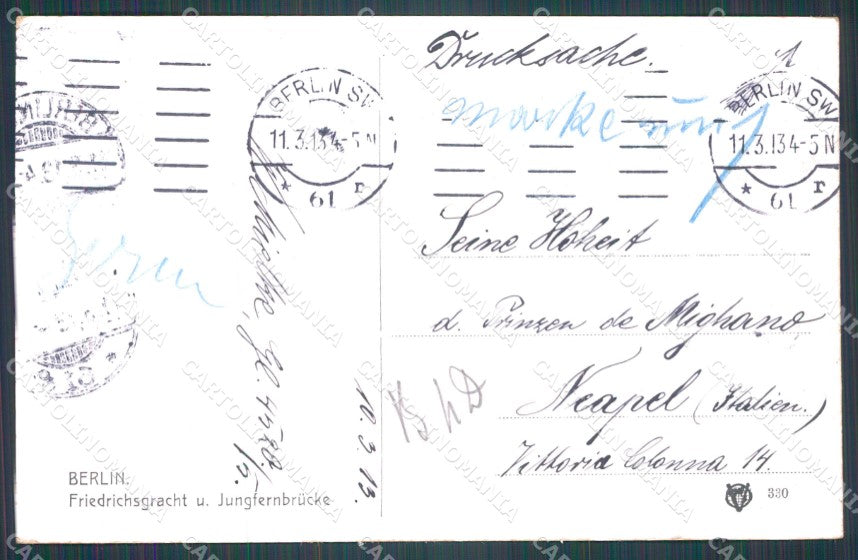 Drucksache.
1
BERLIN SW
11.3.13 4-5 N
* 61 r
BERLIN SW
11.3.13 4-5 N
* 61 r
marke
Seine Hoheit
d. Prinzen de Mighano
Neapel (Italien.)
Vittoria Colonna 14.
10.3.13.
BERLIN.
Friedrichsgracht u. Jungfernbrücke
330
CARTOLINOMANIA